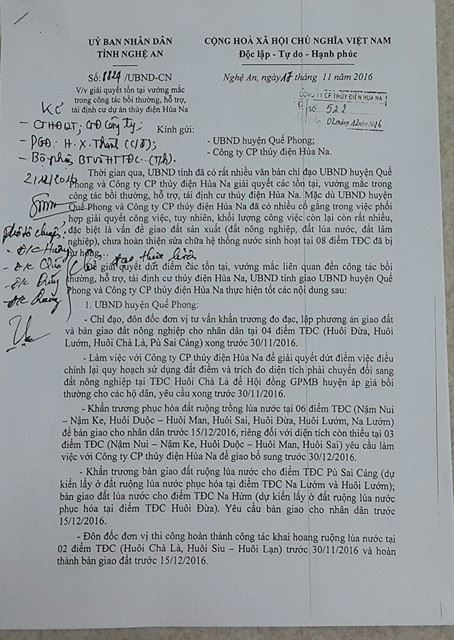 ỦY BAN NHÂN DÂN
TỈNH NGHỆ AN
CỘNG HOÀ XÃ HỘI CHỦ NGHĨA VIỆT NAM
Độc lập - Tự do - Hạnh phúc
Số: /UBND-CN
Nghệ An, ngày 17 tháng 11 năm 2016
V/v giải quyết tồn tại vướng mắc
trong công tác bồi thường, hỗ trợ,
tái định cư dự án thủy điện Hủa Na
CÔNG TY CP THỦY ĐIỆN HỦA NA
SỐ: 522
Kính gửi:
- UBND huyện Quế Phong;
- Công ty CP thủy điện Hủa Na.
Thời gian qua, UBND tỉnh đã có rất nhiều văn bản chỉ đạo UBND huyện Quế
Phong và Công ty CP thủy điện Hủa Na giải quyết các tồn tại, vướng mắc trong
công tác bồi thường, hỗ trợ, tái định cư thủy điện Hủa Na. Mặc dù UBND huyện
Quế Phong và Công ty CP thủy điện Hủa Na đã có nhiều cố gắng trong việc phối
hợp giải quyết công việc, tuy nhiên, khối lượng công việc còn lại còn rất nhiều,
đặc biệt là vấn đề giao đất sản xuất (đất nông nghiệp, đất lúa nước, đất lâm
nghiệp), chưa hoàn thiện sửa chữa hệ thống nước sinh hoạt tại 08 điểm TĐC đã bị
hư hỏng...
Để giải quyết dứt điểm các tồn tại, vướng mắc liên quan đến công tác bồi
thường, hỗ trợ, tái định cư thủy điện Hủa Na, UBND tỉnh giao UBND huyện Quế
Phong và Công ty CP thủy điện Hủa Na thực hiện tốt các nội dung sau:
1. UBND huyện Quế Phong:
- Chỉ đạo, đôn đốc đơn vị tư vấn khẩn trương đo đạc, lập phương án giao đất
và bàn giao đất nông nghiệp cho nhân dân tại 04 điểm TĐC (Huôi Đừa, Huôi
Lướm, Huôi Chà Là, Pù Sai Cáng) xong trước 30/11/2016.
- Làm việc với Công ty CP thủy điện Hủa Na để giải quyết dứt điểm việc điều
chỉnh lại quy hoạch sử dụng đất điểm và trích đo diện tích phải chuyển đổi sang
đất nông nghiệp tại TĐC Huôi Chà Là để Hội đồng GPMB huyện áp giá bồi
thường cho các hộ dân, yêu cầu xong trước 30/11/2016.
- Khẩn trương phục hóa đất ruộng trồng lúa nước tại 06 điểm TĐC (Nậm Nui
– Nậm Ke, Huôi Duộc – Huôi Man, Huôi Sai, Huôi Đừa, Huôi Lướm, Na Lướm)
để bàn giao cho nhân dân trước 15/12/2016, riêng đối với diện tích còn thiếu tại 03
điểm TĐC (Nậm Nui – Nậm Ke, Huôi Duộc – Huôi Man, Huôi Sai) yêu cầu làm
việc với Công ty CP thủy điện Hủa Na để giao bổ sung trước 30/12/2016.
- Khẩn trương bàn giao đất ruộng lúa nước cho điểm TĐC Pù Sai Cáng (dự
kiến lấy ở đất ruộng lúa nước phục hóa tại TĐC Na Lướm và Huôi Lướm);
bàn giao đất lúa nước cho điểm TĐC Na Hứm (dự kiến lấy ở đất ruộng lúa nước
phục hóa tại điểm TĐC Huôi Đừa). Yêu cầu bàn giao cho nhân dân trước
15/12/2016.
- Đôn đốc đơn vị thi công hoàn thành công tác khai hoang ruộng lúa nước tại
02 điểm TĐC (Huôi Chà Là, Huôi Siu – Huôi Lạn) trước 30/11/2016 và hoàn
thành bàn giao đất trước 15/12/2016.